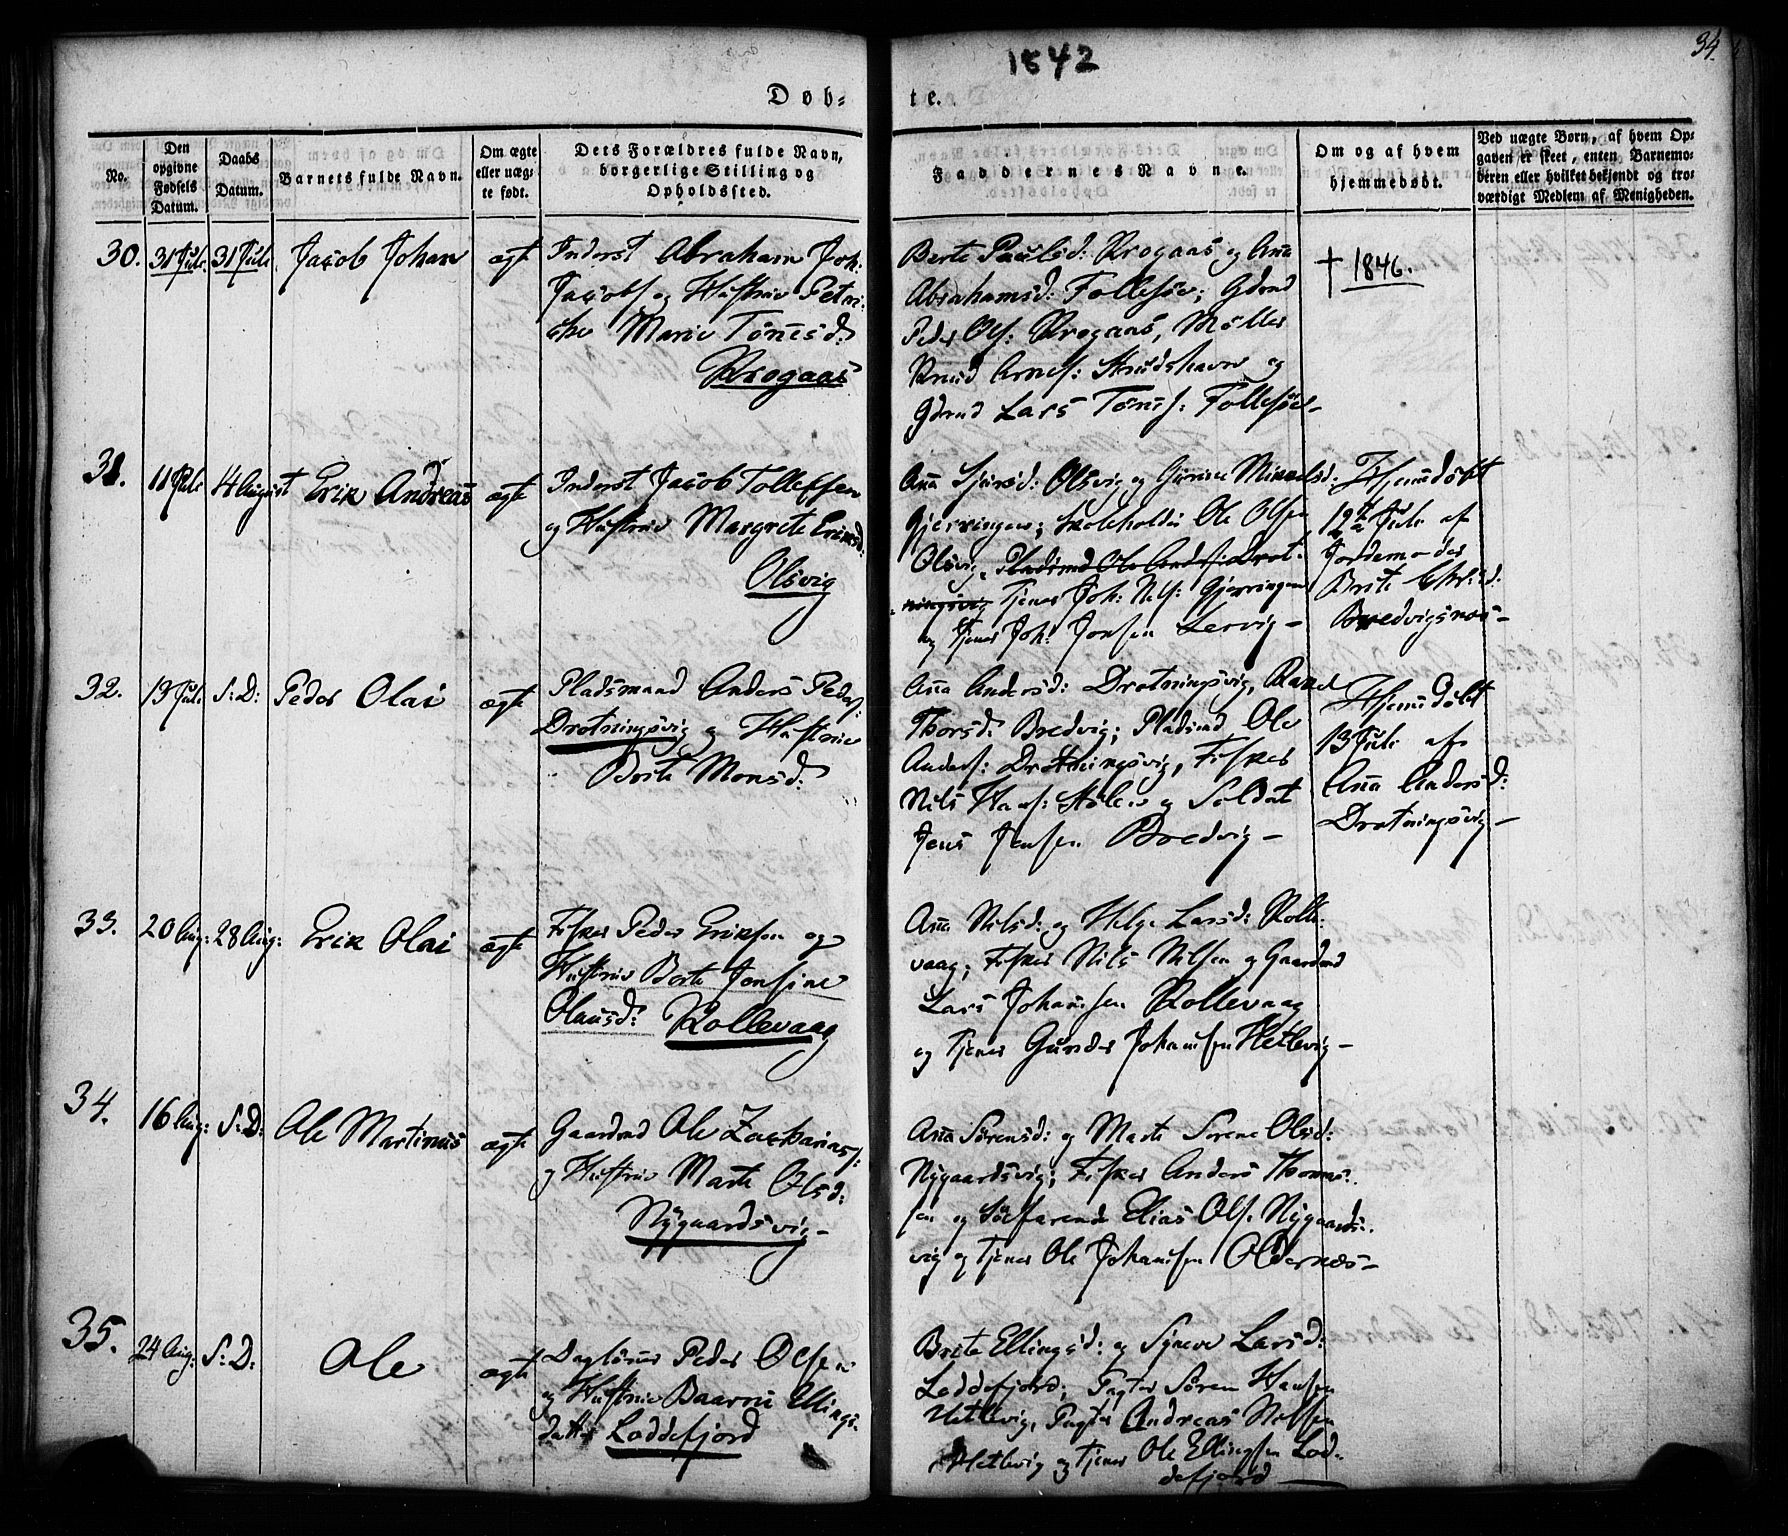 1842
34.
Døb=
te.
No.
Den opgivne Fødsels Datum.
Daabs Datum.
Barnets fulde Navn.
Om ægte eller uæg-te født.
Dets Forældres fulde Navn, borgerlige Stilling og Opholdssted.
Faddernes Navne.
Om og af hvem hjemmedøbt.
Ved uægte Børn, af hvem Op-gaven er skeet, enten Barnemo-deren eller hvilket bekjendt og tro-værdigt Medlem af Menigheden.
30. 31 Juli 31 Juli Jacob Johan ægte
Inderst Abraham Joh:
Jacobs: og Hustrue Petri-
che Marie Tönesd:
Krogaas
Berte Paulsd: Krogaas og Ana
Abrahamsd: Follesöe; Gdmd
Peder Ols: Krogaas, Möller
Knud Arnes: Strudshavn og
Gdmd Lars Tönes: Follesöe-
† 1846.
31. 11 Juli 14 August Erik Andreas ægte
Inderst Jacob Tollefsen
og Hustrue Margrete Eriksd:
Olsvig
Ana Sjursd: Olsvig og Mikkelsd:
Gjerringen; Skoleholder Ole Olsen
Olsvig, Pladsmd Ole Anders: Drot-
ningsvig Tjener Joh: Nils: Gjerringen
og Tjener Joh: Jonsen Lervig-
Hjemmedöbt
12te Juli af
Jordemoder
Brite Chr:d:
Bredvigsnes-
32. 13 Juli S: D: Peder Olai ægte
Pladsmand Anders Peders:
Drotningsvig og Hustrue
Berte Monsd:
Ana Andersd: Drotningsvig, Ranel
Thorsd: Bredvig; Pladsmd Ole
Anders: Drotningsvig, Fisker
Nils Hans: Hölen og Soldat
Jens Jensen Bredvig-
Hjemmedöbt
13 Juli af
Ana Andersd:
Drotningsvig-
33. 20 Aug: 28 Aug: Erik Olai ægte
Fisker Peder Eriksen og
Hustrue Berte Jonsine
Olausd: Kollevaag
Ana Nilsd: og Helge Larsd: Kolle-
vaag; Fisker Nils Nilsen og Gaardmd
Lars Johansen Kollevaag
og Tjener Gunder Johansen Hetlevig-
34. 16 Aug: S: D: Ole Martinus ægte
Gaardmd Ole Zachariass:
og Hustrue Marte Olsd:
Nygaardsvig-
Ana Sörensd: og Marte Serene Olsd:
Nygaardsvig; Fisker Anders Thomas-
sen og Söefarende Elias Ols: Nygaards-
vig og Tjener Ole Johannesen Oldernæs-
35. 24 Aug: S: D: Ole ægte
Daglönner Peder Olsen
og Hustrue Baarni Ellings-
datter Loddefjord
Brite Ellingsd: og Synneve Larsd:
Loddefjord; Pagter Sören Hansen
Hetlevig, Pagter Andreas Nilsen
Hetlevig og Tjener Ole Ellingsen Lod-
defjord